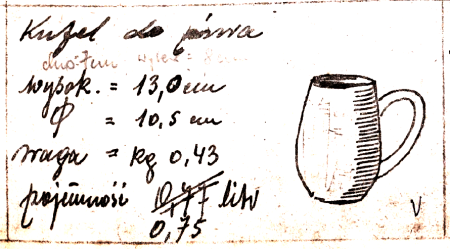 Kufel do piwa
dno-7cm
wysok. = 13,0 cm
φ = 10,5 cm
waga = kg 0,43
pojemność 0,77 litr
0,75
V